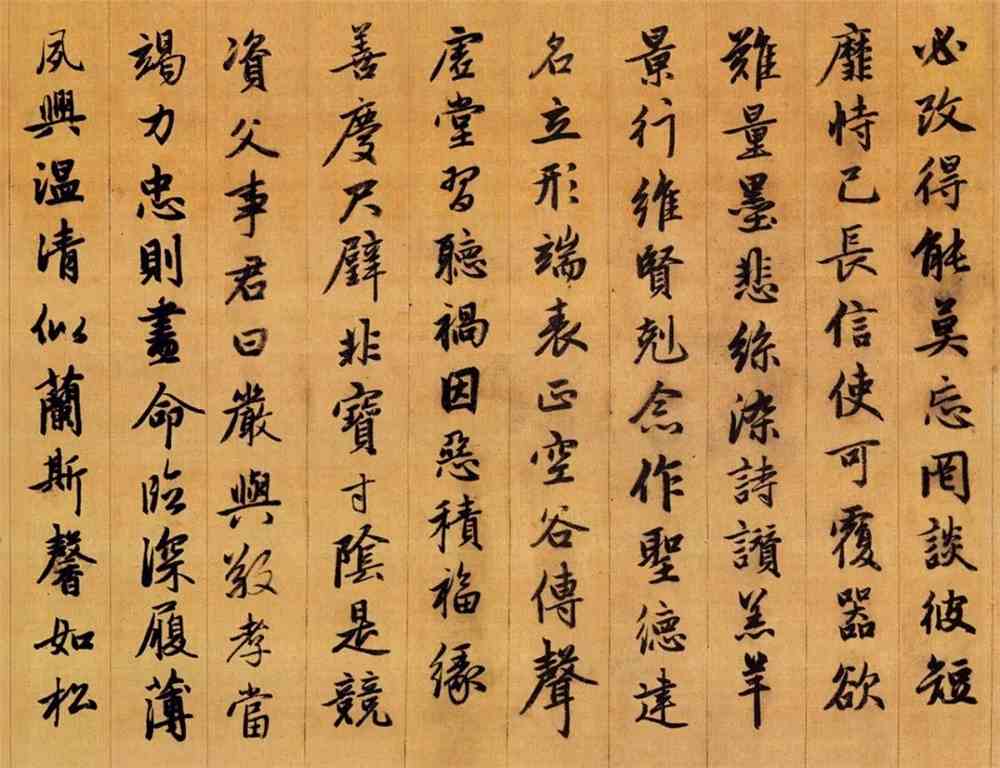 必改得能莫忘罔談彼短
靡恃己長信使可覆器欲
難量墨悲絲染詩讚羔羊
景行維賢剋念作聖德建
名立形端表正空谷傳聲
虛堂習聽禍因惡積福緣
善慶尺璧非寶寸陰是競
資父事君曰嚴與敬孝當
竭力忠則盡命臨深履薄
夙興温凊似蘭斯馨如松